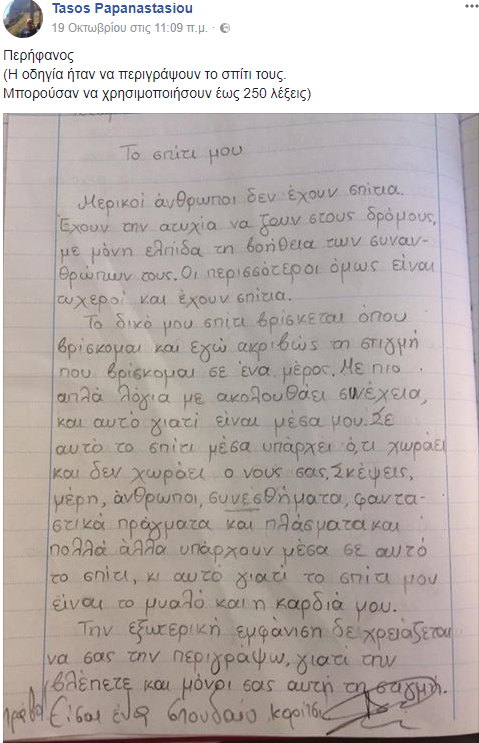 Tasos Papanastasiou
19 Οκτωβρίου στις 11:09 π.μ.
Περήφανος
(Η οδηγία ήταν να περιγράψουν το σπίτι τους.
Μπορούσαν να χρησιμοποιήσουν έως 250 λέξεις)
Το σπίτι μου
Μερικοί άνθρωποι δεν έχουν σπίτια.
Έχουν την ατυχία να ζουν στους δρόμους,
με μόνη ελπίδα τη βοήθεια των συναν-
θρώπων τους. Οι περισσότεροι όμως είναι
τυχεροί και έχουν σπίτια.
Το δικό μου σπίτι βρίσκεται όπου
βρίσκομαι και εγώ ακριβώς τη στιγμή
που βρίσκομαι σε ένα μέρος. Με πιο
απλά λόγια με ακολουθάει συνέχεια,
και αυτό γιατί είναι μέσα μου. Σε
αυτό το σπίτι μέσα υπάρχει ό,τι χωράει
και δεν χωράει ο νους σας. Σκέψεις,
μέρη, άνθρωποι, συνεσθήματα, φαντα-
στικά πράγματα και πλάσματα και
πολλά άλλα υπάρχουν μέσα σε αυτό
το σπίτι, κι αυτό γιατί το σπίτι μου
είναι το μυαλό και η καρδιά μου.
Την εξωτερική εμφάνιση δε χρειάζεται
να σας την περιγράψω, γιατί την
βλέπετε και μόνοι σας αυτή τη στιγμή.
Είσαι ένα σπουδαίο κορίτσι